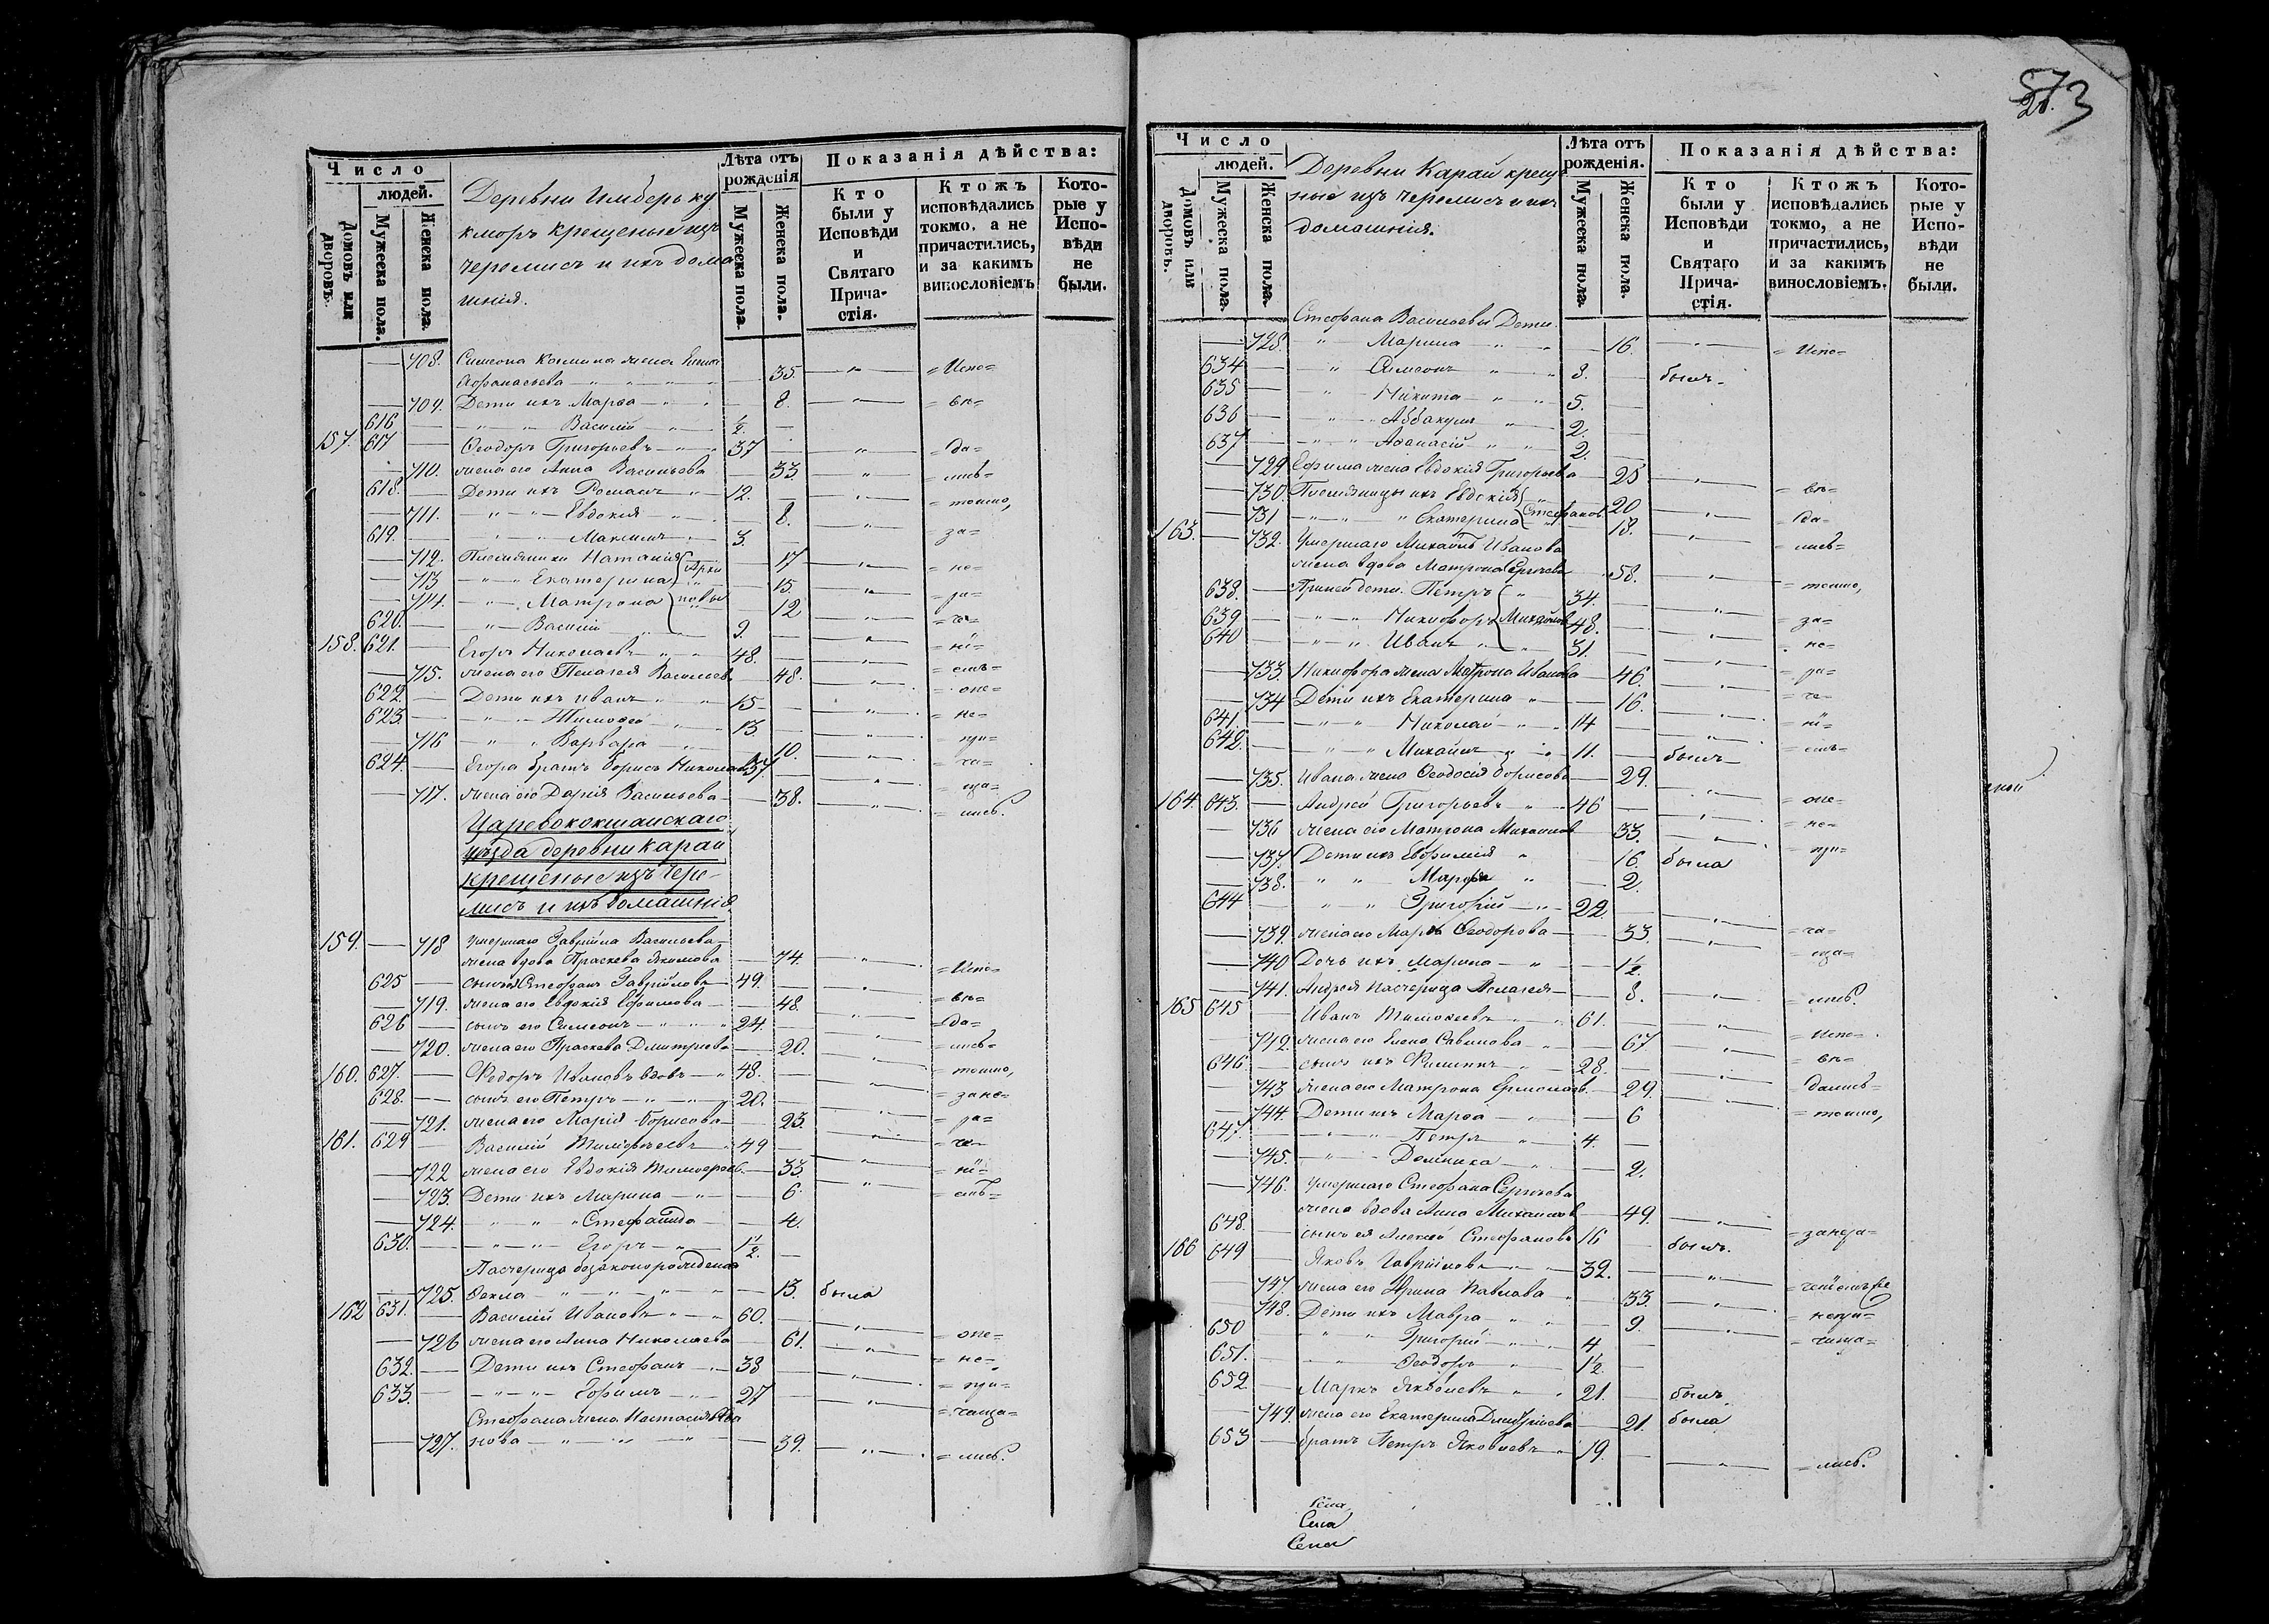 573
20.
Число
людей.
Домовъ или дворовъ.
Мужеска пола.
Женска пола.
Деревни Имберь ку
кморъ крещеные изъ
черемисъ и ихъ дома
шнія.
Лѣта отъ рожденія
Мужеска пола.
Женска пола.
Показанія дѣйства:
Кто были у Исповѣди и Святаго Прича-стія.
Ктожъ исповѣдались токмо, а не причастились, и за какимъ винословіемъ
Кото-рые у Испо-вѣди не были.
— 708. Симеона Косьмина жена Елена
Афанасьева — 35. = Испо=
— 709. Дети ихъ Марѳа — 8. = вѣ=
616 — Василій ½.
157. 617 — Ѳеодоръ Григорьевъ 37 = да=
— 710. жена его Анна Васильева 33. = лись=
618. — Дети ихъ Романъ 12. = токмо,
— 711. Евдокія 8. за=
619. — Максимъ 3.
— 712. Племянники Наталія 17 = не=
— 713 Екатерина Архи 15. = ра=
— 714. Матрона повы 12 = че=
620. — Василій 9. = ні=
158. 621. — Егоръ Николаевъ 48. = емъ=
— 715. жена его Пелагея Васильев. 48. = оне=
622. — Дети ихъ Иванъ 15 = не=
623. — Тимоѳей 13 = при=
— 716 Варвара 10. = ча=
624. — Егора братъ Борисъ Николаев 37 = ща=
— 717. жена его Дарія Васильева 38. = лись.
Царевококшайскаго
уѣзда деревни Карай
крещеные изъ чере-
мисъ и ихъ домашнія
159. — 718 умершаго Гавріила Васильева
жена вдова Праскева Якимова 74. = Испо=
625 — сынъ ея Стефанъ Гавріиловъ 49. = вѣ=
— 719. жена его Евдокія Ефимова 48. = да=
626 — сынъ его Симеонъ 24. = лись=
— 720. жена его Праскева Дмитріева 20. = токмо,
160. 627. — Ѳедоръ Ивановъ вдовъ 48. = зане=
628. — сынъ его Петръ 20. = ра=
— 721. жена его Марія Борисова 23. = че=
161. 629 — Василій Тимоѳеевъ 49 = ні=
— 722 жена его Евдокія 33 = емъ=
— 723 Дети ихъ Марина 6.
— 724. Стефанида 4.
630. — Егоръ 1½.
Пасчерица безаконорожденая
— 725. Ѳекла 13. была
162 631. — Василій Ивановъ 60. = оне=
— 726 жена его Анна Николаева 61. = не=
632. — Дети ихъ Стефанъ 38 = при=
633. — Ефимъ 27 = чаща=
Стефана жена Настасія Ива
— 727. нова 39. = лись.
Число
людей.
Домовъ или дворовъ.
Мужеска пола.
Женска пола.
Деревни Карай креще
ные изъ черемисъ и ихъ
домашнія.
Лѣта отъ рожденія.
Мужеска пола.
Женска пола.
Показанія дѣйства:
Кто были у Исповѣди и Святаго Прича-стія.
Ктожъ исповѣдались токмо, а не причастились, и за какимъ винословіемъ.
Кото-рые у Испо-вѣди не были.
Стефана Васильева Дети
— 728. Марина 16. = Испо=
634 — Симеонъ 8. былъ
635 — Никита 5.
636 — Аввакумъ 2.
637 — Аѳанасій 2.
— 729 Ефима жена Евдокія Григорьева 25 = вѣ=
— 730. Племянницы ихъ Евдокія 20 = да=
— 731 Екатерина Стефанов. 18. = лись=
163. — 732. Умершаго Михаилъ Иванова
жена вдова Матрона Сергѣева 58. = токмо,
638. — При ней дети Петръ 34. = за=
639 — Никифоръ Михайловы 48. = не=
640 — Иванъ 31. = ра=
— 733. Никифора жена Матрона Иванова 46. = че=
— 734 Дети ихъ Екатерина 16. = ні=
641. — Николай 14 = емъ=
642. — Михаилъ 11. былъ
— 735. Ивана жена Ѳеодосія Борисова 29. = оне=
164. 643. — Андрей Григорьевъ 46 = не=
— 736 жена его Матрона Михайлов 33. = при=
— 737. Дети ихъ Евфимія 16 была
— 738. Марфа 2.
644 — Григорій 22 = ча=
— 739. жена его Марія Ѳеодорова 33. = ща=
— 740 Дочь ихъ Марина 1½.
— 741. Андрея пасчерица Пелагея 8. = лись.
165 645 — Иванъ Тимоѳеевъ 61. = Испо=
— 742 жена его Елена Савинова 67. = вѣ=
646 — сынъ ихъ Филиппъ 28. = дались=
— 743 жена его Матрона Ермолаев. 29. = токмо,
— 744. Дети ихъ Марѳа 6
647. — Петръ 4.
— 745. Домника 2.
— 746. умершаго Стефана Сергѣева
жена вдова Анна Михайлов 49. = занера=
648. — сынъ ея Алексѣй Стефановъ 16 былъ.
166 649 — Яковъ Гавріиловъ 32. = ченіемъ не
— 747. жена его Ирина Павлова 33. = непри=
— 748. Дети ихъ Мавра 9. = чаща=
650 — Григорій 4
651. — Ѳеодоръ 1½
652. — Маркъ Яковлевъ 21. былъ
— 749. жена его Екатерина Дмитріева 21. была
653 — братъ Петръ Яковлевъ 19. = лись.
Села
Села